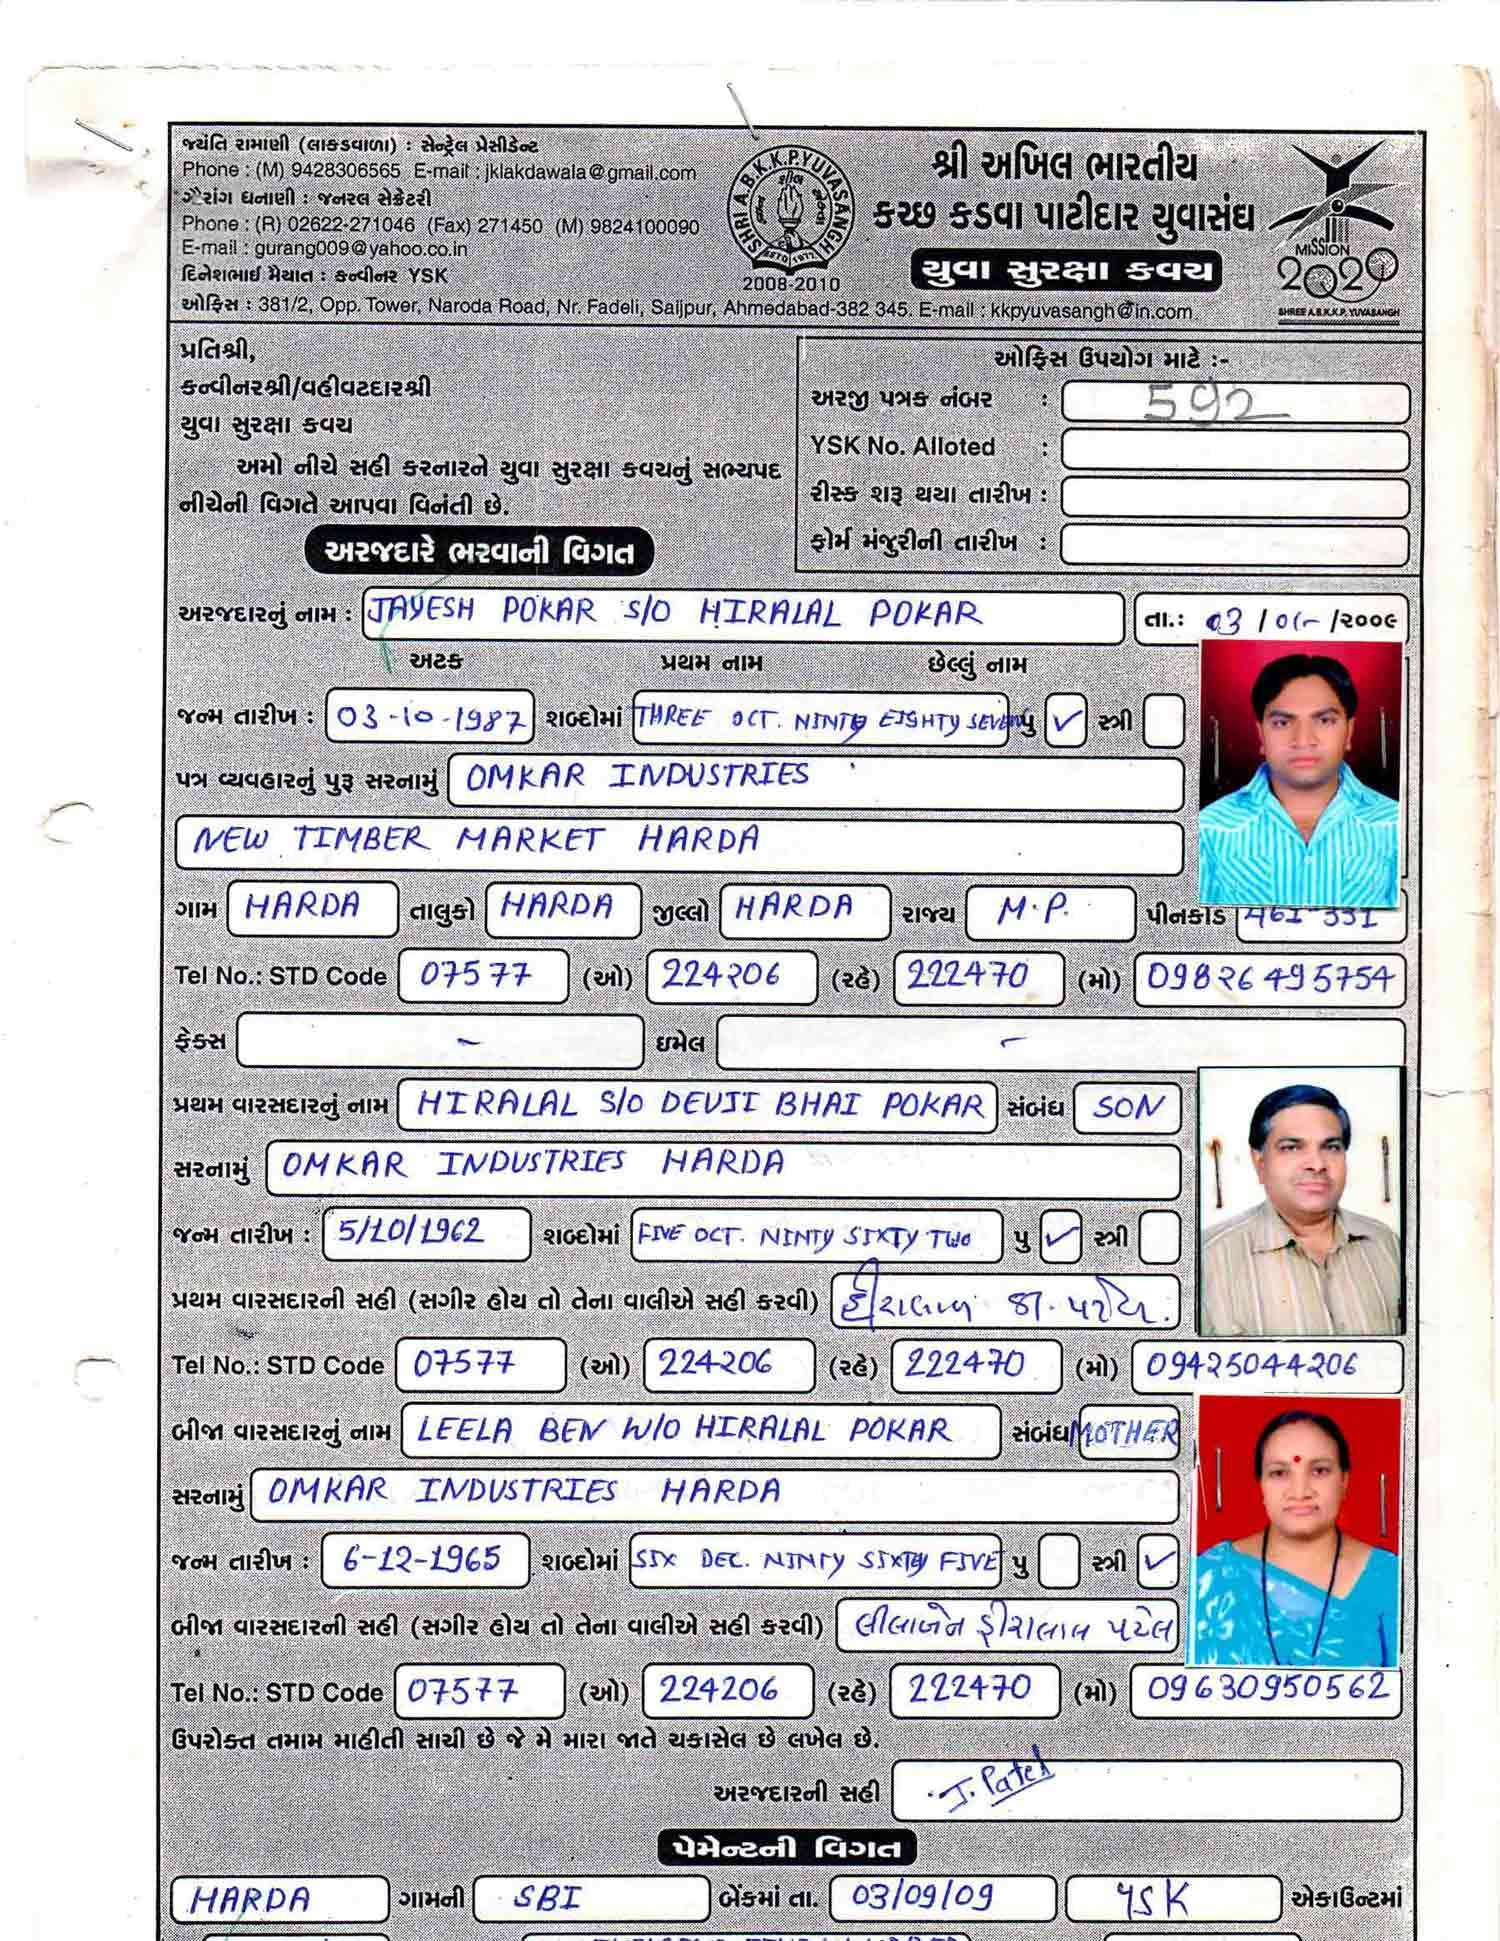 જયંતિ રામાણી (લાકડવાળા) : સેન્ટ્રેલ પ્રેસીડેન્ટ
Phone : (M) 9428306565 E-mail : jklakdawala@gmail.com
ગૌરાંગ ધનાણી : જનરલ સેક્રેટરી
Phone : (R) 02622-271046 (Fax) 271450 (M) 9824100090
E-mail : gurang009@yahoo.co.in
દિનેશભાઈ મૈયાત : કન્વીનર YSK
ઓફિસ : 381/2, Opp. Tower, Naroda Road, Nr. Fadeli, Saijpur, Ahmedabad-382 345. E-mail : kkpyuvasangh@in.com
SHRI A.B.K.K.P. YUVASANGH
ESTD 1977
2008-2010
શ્રી અખિલ ભારતીય
કચ્છ કડવા પાટીદાર યુવાસંઘ
યુવા સુરક્ષા કવચ
MISSION
2020
SHREE A.B.K.K.P. YUVASANGH
પ્રતિશ્રી,
કન્વીનરશ્રી/વહીવટદારશ્રી
યુવા સુરક્ષા કવચ
અમો નીચે સહી કરનારને યુવા સુરક્ષા કવચનું સભ્યપદ
નીચેની વિગતે આપવા વિનંતી છે.
ઓફિસ ઉપયોગ માટે :-
અરજી પત્રક નંબર : 592
YSK No. Alloted :
રીસ્ક શરૂ થયા તારીખ :
ફોર્મ મંજુરીની તારીખ :
અરજદારે ભરવાની વિગત
અરજદારનું નામ : JAYESH POKAR S/O HIRALAL POKAR તા.: 03 / /૨૦૦૯
અટક પ્રથમ નામ છેલ્લું નામ
જન્મ તારીખ : 03-10-1987 શબ્દોમાં THREE OCT. NINTY EIGHTY SEVEN પુ ✓ સ્ત્રી
પત્ર વ્યવહારનું પુરૂ સરનામું OMKAR INDUSTRIES
NEW TIMBER MARKET HARDA
ગામ HARDA તાલુકો HARDA જીલ્લો HARDA રાજ્ય M.P. પીનકોડ 461-331
Tel No.: STD Code 07577 (ઓ) 224206 (રહે) 222470 (મો) 09826495754
ફેક્સ - ઇમેલ -
પ્રથમ વારસદારનું નામ HIRALAL S/O DEVJI BHAI POKAR સંબંધ SON
સરનામું OMKAR INDUSTRIES HARDA
જન્મ તારીખ : 5/10/1962 શબ્દોમાં FIVE OCT. NINTY SIXTY TWO પુ ✓ સ્ત્રી
પ્રથમ વારસદારની સહી (સગીર હોય તો તેના વાલીએ સહી કરવી)
Tel No.: STD Code 07577 (ઓ) 224206 (રહે) 222470 (મો) 09425044206
બીજા વારસદારનું નામ LEELA BEN W/O HIRALAL POKAR સંબંધ MOTHER
સરનામું OMKAR INDUSTRIES HARDA
જન્મ તારીખ : 6-12-1965 શબ્દોમાં SIX DEC. NINTY SIXTY FIVE પુ સ્ત્રી ✓
બીજા વારસદારની સહી (સગીર હોય તો તેના વાલીએ સહી કરવી) લીલાબેન હીરાલાલ પટેલ
Tel No.: STD Code 07577 (ઓ) 224206 (રહે) 222470 (મો) 09630950562
ઉપરોક્ત તમામ માહીતી સાચી છે જે મે મારા જાતે ચકાસેલ છે લખેલ છે.
અરજદારની સહી J. Patel
પેમેન્ટની વિગત
HARDA ગામની SBI બેંકમાં તા. 03/09/09 YSK એકાઉન્ટમાં